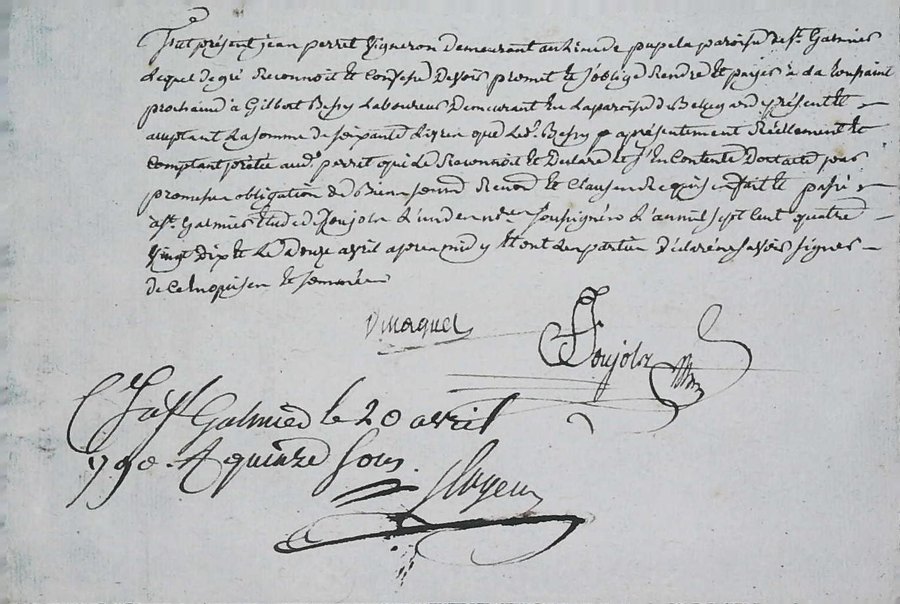 fut présent jean perret Vigneron demeurant au lieu de paroisse de st. Galmier
Lequel de gré Reconnoit et Confesse Devoir promet et s'oblige Rendre et payer à La toussaint
prochaine à Gilbert Bessy Laboureur Demeurant En La paroisse de Bellegarde présent et
acceptant La somme de soixante Livres que Led. Bessy a présentement Réellement et
comptant prêtée aud. perret qui Le Reconnoit et Declare Et s'En Contente Dont acte par
promesse obligation de Biens Renond et Clauses Requises fait et passé
à st. Galmier Etude Poujola L'un des nres soussignés L'an mil sept cent quatre
Vingt dix et Le Douze avril après midy Et ont Les parties Déclaré ne savoir signer
de Ce Enquises et sommées
Poujola
à st Galmier le 20 avril
1790. R quinze sous.